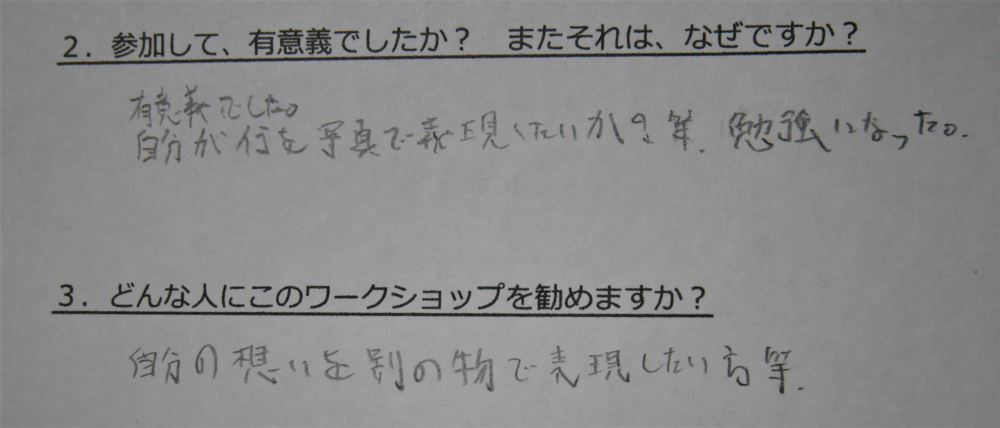 2．参加して、有意義でしたか？　またそれは、なぜですか？
有意義でした。
自分が何を写真で表現したいか？等、勉強になった。
3．どんな人にこのワークショップを勧めますか？
自分の想いを別の物で表現したい方等、